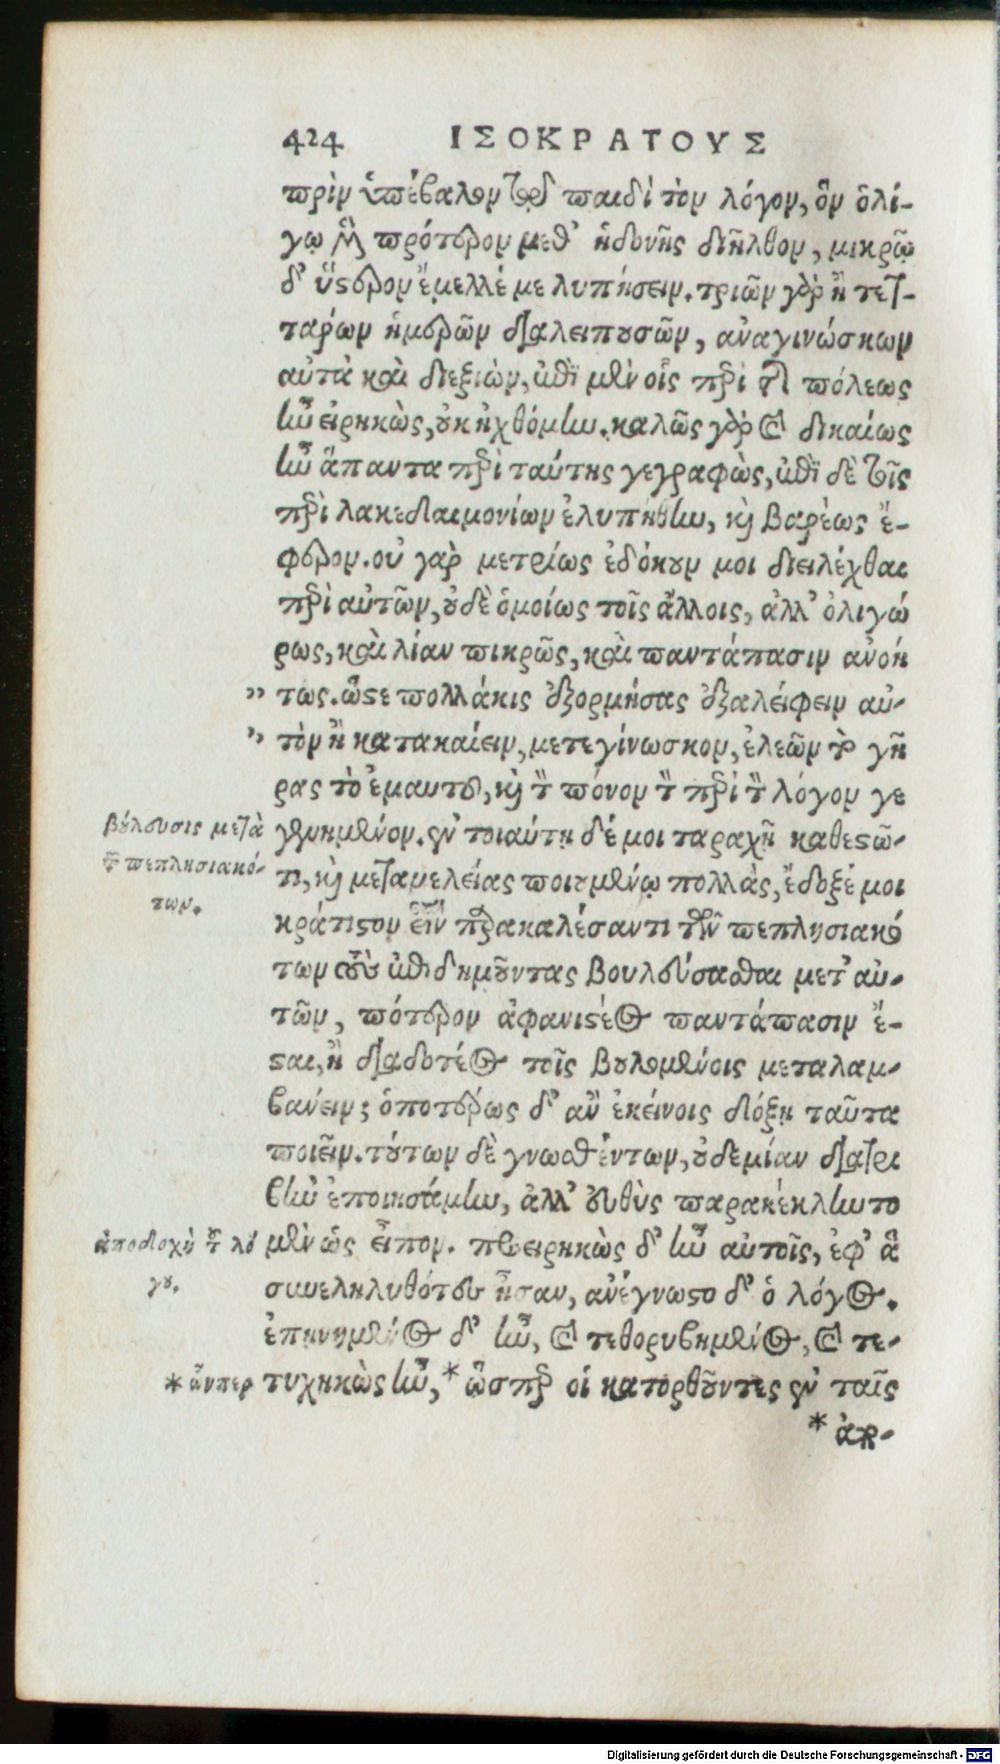 424 ΙΣΟΚΡΑΤΟΥΣ
πρὶν ὑπέβαλον τῷ παιδὶ τὸν λόγον, ὃν ὀλί-
γῳ μὲν πρότερον μεθ' ἡδονῆς διῆλθον, μικρῷ
δ' ὕστερον ἔμελλέ με λυπήσειν. τριῶν γὰρ ἢ τετ-
ταρων ἡμερῶν διαλειπουσῶν, ἀναγινώσκων
αὐτὰ καὶ διεξιὼν, ἐπὶ μὲν οἷς περὶ τῆς πόλεως
ἦν εἰρηκὼς, οὐκ ἠχθόμην. καλῶς γὰρ καὶ δικαίως
ἦν ἅπαντα περὶ ταύτης γεγραφὼς, ἐπὶ δὲ τοῖς
περὶ λακεδαιμονίων ἐλυπήθην, καὶ βαρέως ἔ-
φερον. οὐ γὰρ μετρίως ἐδόκουν μοι διειλέχθαι
περὶ αὐτῶν, οὐδὲ ὁμοίως τοῖς ἄλλοις, ἀλλ' ὀλιγώ
ρως, καὶ λίαν πικρῶς, καὶ παντάπασιν ἀνοή
" τως. ὥστε πολλάκις ἐξορμήσας ἐξαλείφειν αὐ-
" τὸν ἢ κατακαίειν, μετεγίνωσκον, ἐλεῶν τὸ γῆ
ρας τὸ ἐμαυτοῦ, καὶ τὸν πόνον τὸν περὶ τὸν λόγον γε
γενημένον. ἐν τοιαύτῃ δέ μοι ταραχῇ καθεστῶ-
τι, καὶ μεταμελείας ποιουμένῳ πολλὰς, ἔδοξέ μοι
κράτιστον εἶναι παρακαλέσαντι τῶν πεπλησιακό
των τοὺς ἐπιδημοῦντας βουλεύσασθαι μετ' αὐ-
τῶν, πότερον ἀφανιστέος παντάπασιν ἔ-
σται, ἢ διαδοτέος τοῖς βουλομένοις μεταλαμ-
βάνειν; ὁποτέρως δ' ἂν ἐκείνοις δόξῃ ταῦτα
ποιεῖν. τούτων δὲ γνωσθέντων, οὐδεμίαν διατρι
βὴν ἐποιησάμην, ἀλλ' εὐθὺς παρακέκληντο
μὲν ὡς εἶπον. προειρηκὼς δ' ἦν αὐτοῖς, ἐφ' ἃ
συνεληλυθότες ἦσαν, ἀνέγνωστο δ' ὁ λόγος.
ἐπῃνημένος δ' ἦν, καὶ τεθορυβημένος, καὶ τε-
τυχηκὼς ἦν, * ὥσπερ οἱ κατορθοῦντες ἐν ταῖς
* ἀπο-
βούλευσις μετὰ
τῶν πεπλησιακό-
των.
ἀποδοχὴ τοῦ λό
γου.
* ὧνπερ
Digitalisierung gefördert durch die Deutsche Forschungsgemeinschaft - DFG